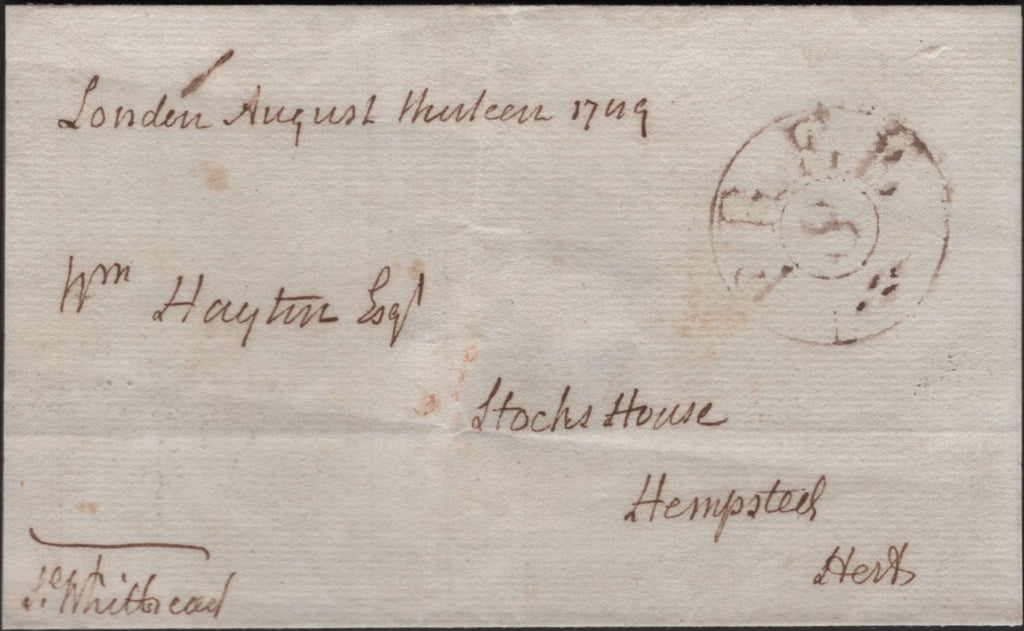 London August thirteen 1789
FREE
S
Wm Hayton Esqr
Stocks House
Hempsted
Herts
Whitbread